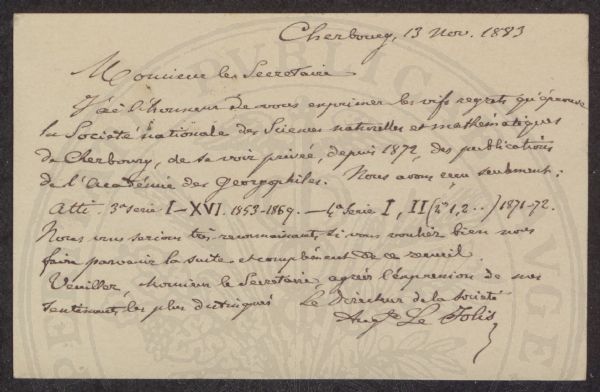 Cherbourg, 13 Nov. 1883
Monsieur le Secrétaire
J'ai l'honneur de vous exprimer les vifs regrets qu'éprouve
la Société nationale des Sciences naturelles et mathématiques
de Cherbourg, de se voir privée, depuis 1872, des publications
de l'Académie des Georgophiles. Nous avons reçu seulement :
Atti. 3a serie I—XVI. 1853-1869. — 4a Serie I, II (nos 1, 2 . . ) 1871-72.
Nous vous serions très reconnaissants, si vous vouliez bien nous
faire parvenir la suite et complément de ce recueil.
Veuillez, Monsieur le Secrétaire, agréer l'expression de nos
sentiments les plus distingués Le Directeur de la Société
Augte Le Jolis